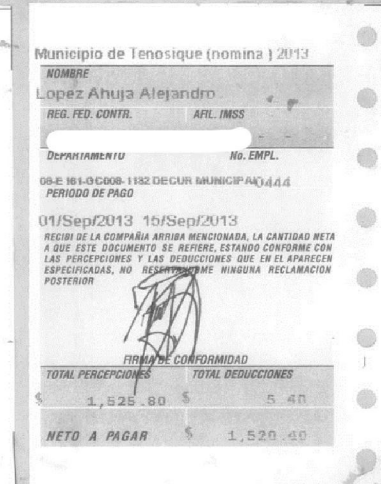 Municipio de Tenosique (nomina ) 2013
NOMBRE
Lopez Ahuja Alejandro
REG. FED. CONTR. AFIL. IMSS
- -
DEPARTAMENTO No. EMPL.
DECUR MUNICIPAL 0444
PERIODO DE PAGO
01/Sep/2013 15/Sep/2013
RECIBI DE LA COMPAÑIA ARRIBA MENCIONADA, LA CANTIDAD NETA
A QUE ESTE DOCUMENTO SE REFIERE, ESTANDO CONFORME CON
LAS PERCEPCIONES Y LAS DEDUCCIONES QUE EN EL APARECEN
ESPECIFICADAS, NO RESERVANDOME NINGUNA RECLAMACION
POSTERIOR
FIRMA DE CONFORMIDAD
TOTAL PERCEPCIONES TOTAL DEDUCCIONES
$ 1,525.80 $ 5.40
NETO A PAGAR $ 1,520.40